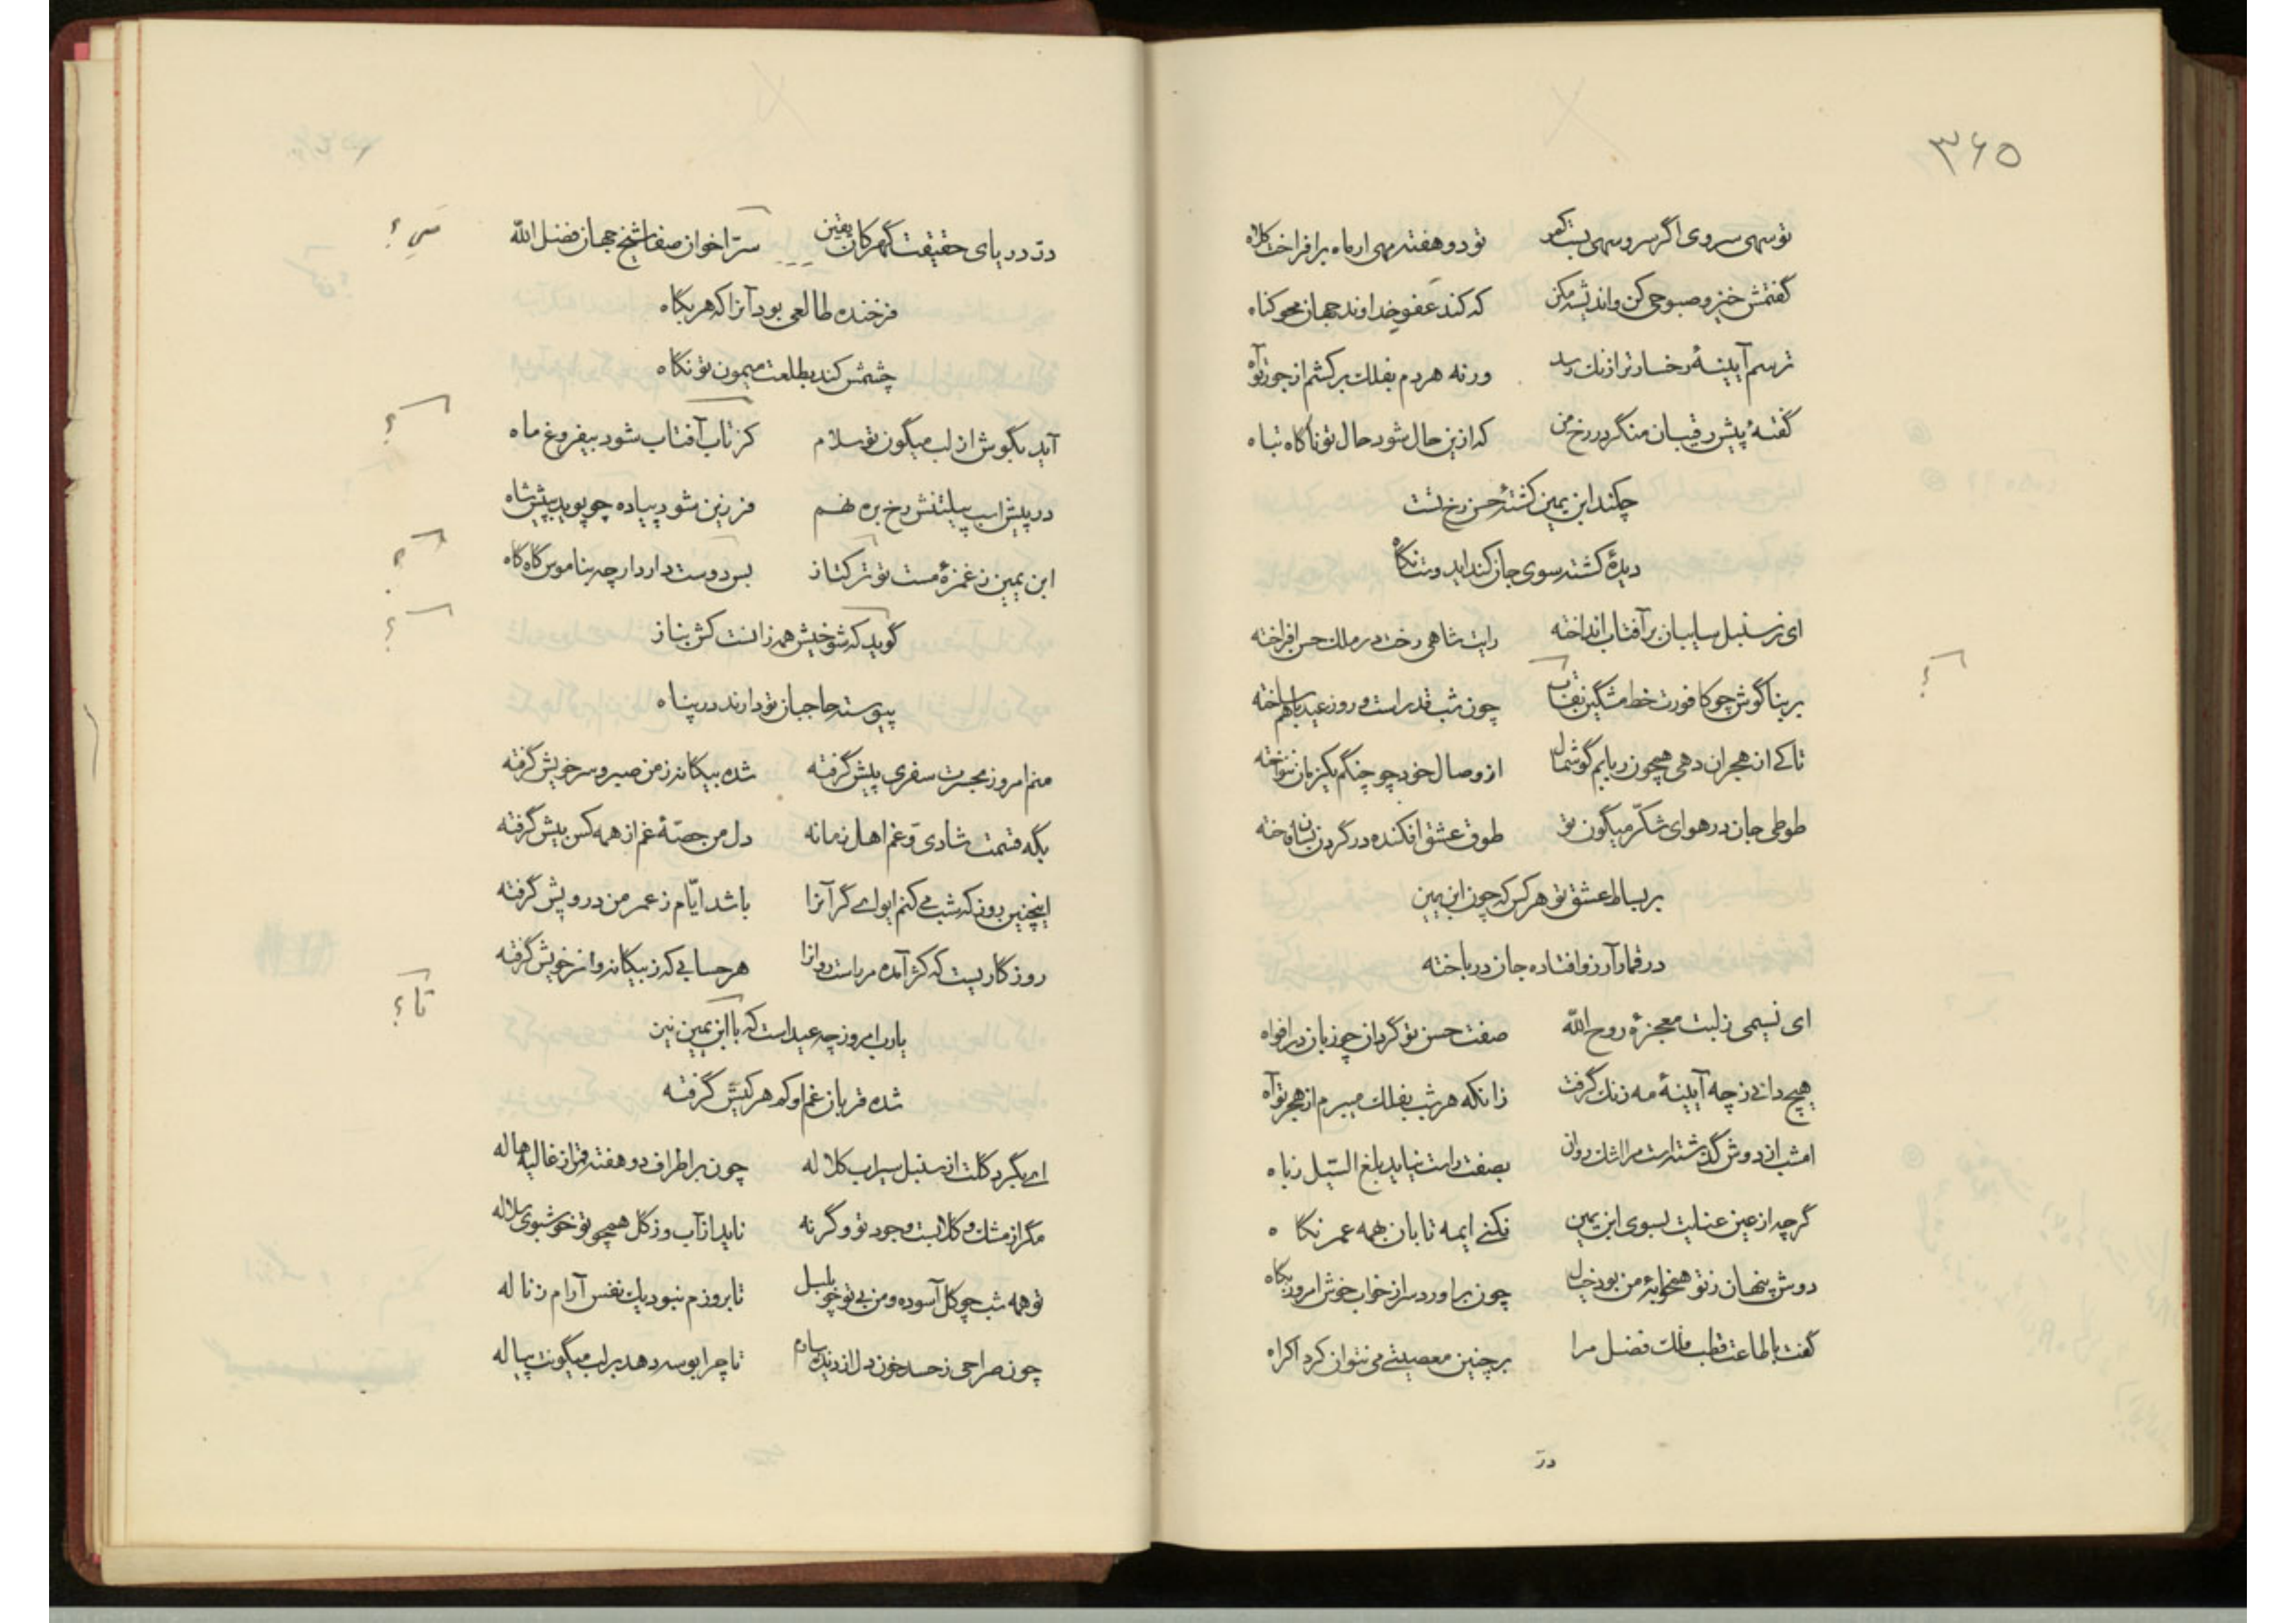 ۳۶۵
تو سهی سروی اگر سرو سهی بست کمر تو دو هفته مهی ار ماه برافراخت کلاه
گفتمش خیز و صبوحی کن و اندیشه مکن که کند عفو خداوند جهان محو کناه
ترسم آیینهٔ رخسار ترا زنک رسد ورنه هر دم بفلک برکشم از جور تو آه
گفتهٔ پیش رقیبان منگر در رخ من که ازین حال شود حال تو ناکاه تباه
چکند ابن یمین کشتهٔ حسن رخ تست
دیدهٔ کشته سوی جان کند ایدوست نکاه
ای ز سنبل سایبان بر آفتاب انداخته رایت شاهی رخت در ملک حسن افراخته
بر بناگوش چو کافورت خط مشگین نقاب چون شب قدر است و روز عید باهم ساخته
تا کے از هجران دهی همچون ربابم گوشمال از وصال خود چو چنگم یکزمان ننواخته
طوطی جان در هوای شکّر میگون تو طوق عشق افکنده در گردن بسان فاخته
بر بساط عشق تو هر کس که چون ابن یمین
در قمار آرزو افتاده جان درباخته
ای نسیمی ز لبت معجزهٔ روح اللّه صفت حسن تو گردان چو زبان در افواه
هیچ دانی ز چه آیینهٔ مه زنک گرفت زانکه هر شب بفلک میبرم از هجر تو آه
امشب از دوش گذشتست مرا اشک روان بصفت راست نیاید بلغ السّیل زباه
گرچه از عین عنایت بسوی ابن یمین نکنے ایمه تابان بهمه عمر نکاه
دوش پنهان ز تو همخوابهٔ من بود خیال چون براورد سر از خواب خوش امروز بکاه
گفت با طاعت قطب فلک فضل مرا بر چنین معصیتے می نتوان کرد اکراه
درّ
درّ دریای حقیقت گهر کان یقین سرّ اخوان صفا شیخ جهان فضل اللّه
سَرِ ؟
فرخنده طالعی بود آنرا که هر بکاه
چشمش کند بطلعت میمون تو نکاه
آید بگوش از لب میگون تو سلام کز تاب آفتاب شود بیفروغ ماه
؟
در پیش اسب پیلتنش رخ بره نهم فرزین شود پیاده چو پوید بپیش شاه
ابن یمین ز غمزهٔ مست تو ترکتاز بس دوست دارد ارچه بناموس کاه کاه
؟
گوید که شوخیش همه زانست کش بناز
؟
پیوسته حاجبان تو دارند در پناه
منم امروز بحسرت سفری پیش گرفته شده بیکانه ز من صبر و سر خویش گرفته
بگه قسمت شادی و غم اهل زمانه دل من حصّهٔ غم از همه کس بیش گرفته
اینچنین روز که شب مے کنم ایواے گر آنرا باشد ایّام ز عمر من درویش گرفته
روزکاریست که کژ آمده مر راست روانرا هر حسابی که ز بیکانه و از خویش گرفته
تا ؟
یارب امروز چه عید است که با ابن یمین نین
شده قربان غم او که هر کیش گرفته
اے بگرد گلت از سنبل سیراب کلاله چون بر اطراف دو هفته قمر از غالیه هاله
مگر از مشک و کلابست وجود تو و گرنه ناید از آب و ز کل همچو تو خوشبوی سلاله
تو همه شب چو کل آسوده و من بی تو چو بلبل تا بروزم نبود یک نفس آرام ز ناله
چون صراحی ز حسد خون دل از دیده ببارم تا چرا بوسه دهد بر لب میگونت پیاله